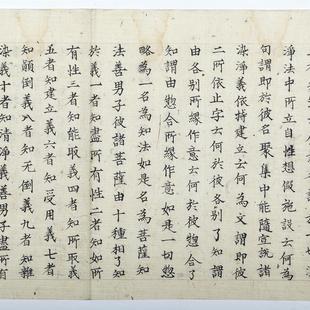 淨法中所立自性想假施設云何為
句謂即於彼名聚集中能隨宣說諸
染淨義依持建立云何為文謂即彼
二所依止字云何於彼各別了知謂
由各別所緣作意云何於彼惣合了
知謂由惣合所緣作意如是一切惣
略為一名為知法如是名為菩薩知
法善男子彼諸菩薩由十種相了知
於義一者知盡所有性二者知如所
有性三者知能取義四者知所取義
五者知建立義六者知受用義七者
知顛倒義八者知无倒義九者知雜
染義十者知清淨義善男子盡所有